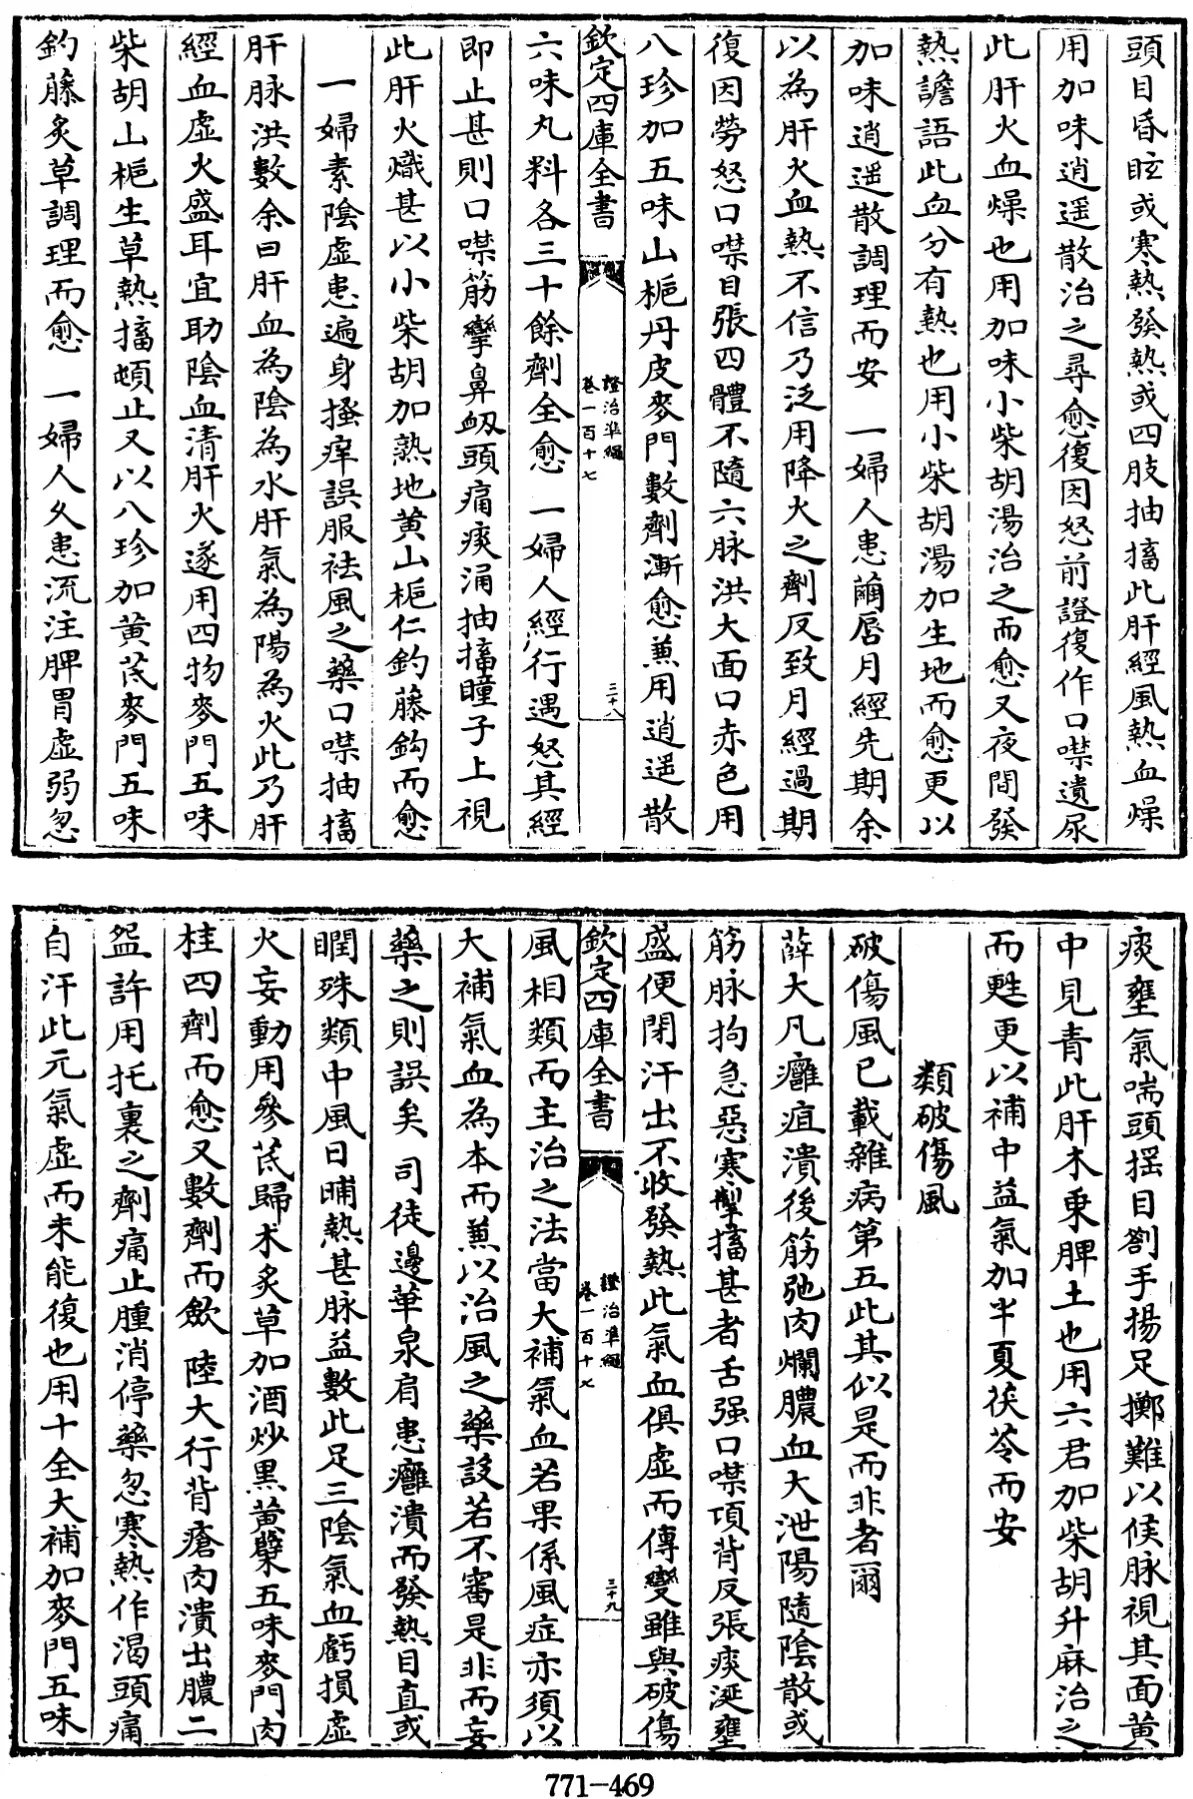 頭目昏眩或寒熱發熱或四肢抽搐此肝經風熱血燥
用加味逍遥散治之尋愈復因怒前證復作口噤遺尿
此肝火血燥也用加味小柴胡湯治之而愈又夜間發
熱譫語此血分有熱也用小柴胡湯加生地而愈更以
加味逍遥散調理而安 一婦人患繭唇月經先期余
以為肝火血熱不信乃泛用降火之劑反致月經過期
復因勞怒口噤目張四體不隨六脉洪大面口赤色用
八珍加五味山梔丹皮麥門數劑漸愈兼用逍遥散
欽定四庫全書 證治準繩 卷一百十七 三十八
六味丸料各三十餘劑全愈 一婦人經行遇怒其經
即止甚則口噤筋攣鼻衂頭痛痰涌抽搐瞳子上視
此肝火熾甚以小柴胡加熟地黄山梔仁釣藤鈎而愈
一婦素陰虚患遍身搔痒誤服袪風之藥口噤抽搐
肝脉洪數余曰肝血為陰為水肝氣為陽為火此乃肝
經血虚火盛耳宜助陰血清肝火遂用四物麥門五味
柴胡山梔生草熱搐頓止又以八珍加黄芪麥門五味
釣藤炙草調理而愈 一婦人久患流注脾胃虚弱忽
痰壅氣喘頭揺目劄手揚足擲難以候脉視其面黄
中見青此肝木乗脾土也用六君加柴胡升麻治之
而甦更以補中益氣加半夏茯苓而安
類破傷風
破傷風已載雜病第五此其似是而非者爾
薛大凡癰疽潰後筋弛肉爛膿血大泄陽隨陰散或
筋脉拘急惡寒掣搐甚者舌强口噤項背反張痰涎壅
盛便閉汗出不收發熱此氣血俱虚而傳變雖與破傷
欽定四庫全書 證治準繩 卷一百十七 三十九
風相類而主治之法當大補氣血若果係風症亦須以
大補氣血為本而兼以治風之藥設若不審是非而妄
藥之則誤矣 司徒邊華泉肩患癰潰而發熱目直或
瞤殊類中風日晡熱甚脉益數此足三陰氣血虧損虚
火妄動用參芪歸术炙草加酒炒黑黄蘗五味麥門肉
桂四劑而愈又數劑而斂 陸大行背瘡肉潰出膿二
盌許用托裏之劑痛止腫消停藥忽寒熱作渴頭痛
自汗此元氣虚而未能復也用十全大補加麥門五味
771-469